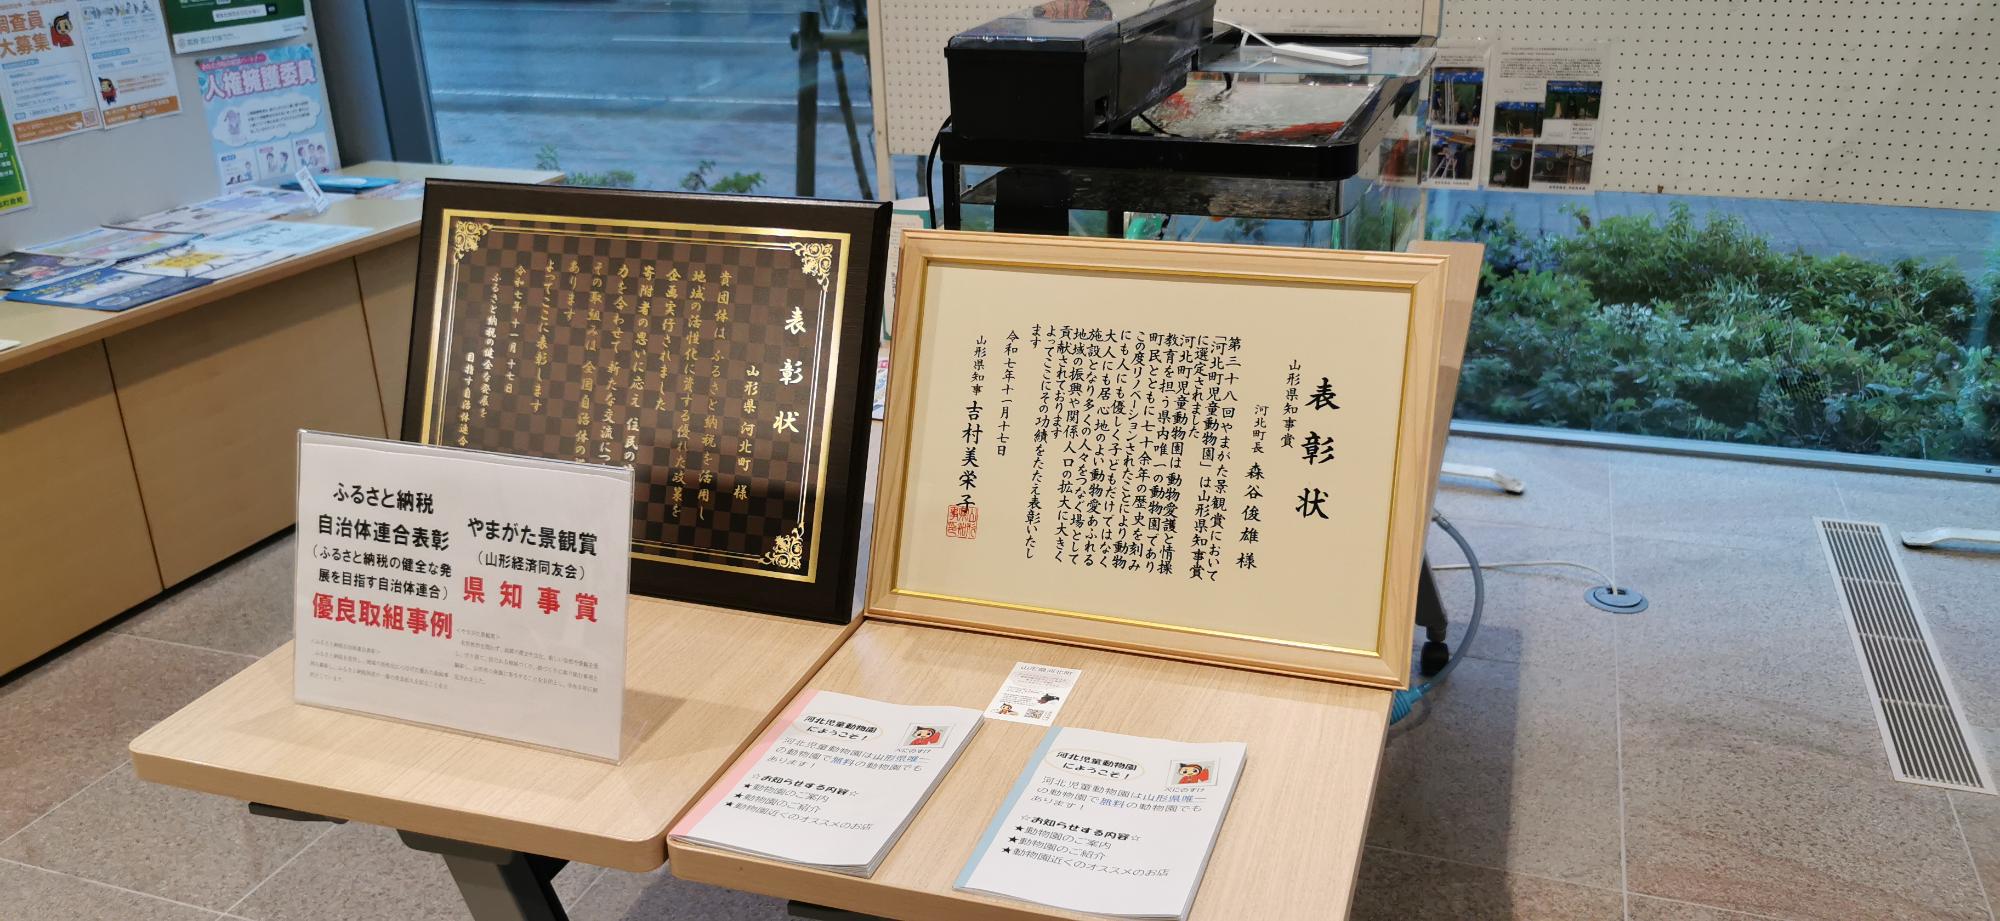 調査員
大募集
人権擁護委員
表彰状
山形県 河北町 様
貴団体は ふるさと納税を活用し
地域の活性化に資する優れた政策を
企画実行されました
寄附者の思いに応え 住民の
力を合わせて 新たな交流につ
その取組みは 全国自治体の
あります
よってここに表彰します
令和七年十一月十七日
ふるさと納税の健全な発展を
目指す自治体連合
表彰状
山形県知事賞
河北町長 森谷俊雄 様
第三十八回やまがた景観賞において
「河北町児童動物園」は山形県知事賞
に選定されました
河北町児童動物園は動物愛護と情操
教育を担う県内唯一の動物園であり
町民とともに七十余年の歴史を刻み
この度リノベーションされたことにより動物
にも人にも優しく子どもだけではなく
大人にも居心地のよい動物愛あふれる
施設となり多くの人々をつなぐ場として
地域の振興や関係人口の拡大に大きく
貢献されております
よってここにその功績をたたえ表彰いたし
ます
令和七年十一月十七日
山形県知事 吉村美栄子
ふるさと納税
自治体連合表彰
(ふるさと納税の健全な発
展を目指す自治体連合)
優良取組事例
やまがた景観賞
(山形経済同友会)
県知事賞
山形県河北町
河北児童動物園
にようこそ!
河北児童動物園は山形県唯一
の動物園で無料の動物園でも
あります!
☆お知らせする内容☆
★動物園のご案内
★動物園のご紹介
★動物園近くのオススメのお店
河北児童動物園
にようこそ!
河北児童動物園は山形県唯一
の動物園で無料の動物園でも
あります!
☆お知らせする内容☆
★動物園のご案内
★動物園のご紹介
★動物園近くのオススメのお店